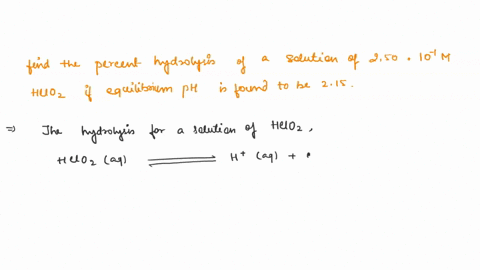 find the percent hydrolysis of a solution of 2.50 * 10⁻¹ M
HClO2 if equilibrium pH is found to be 2.15.
⇒ The hydrolysis for a solution of HClO2,
HClO2 (aq) ⇌ H⁺ (aq) +